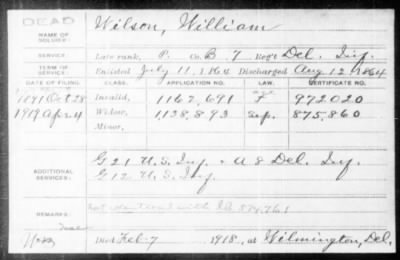 DEAD
NAME OF SOLDIER: Wilson, William
SERVICE: Late rank, P. Co. B 7 Reg't Del. Inf.
TERM OF SERVICE: Enlisted July 11, 1864 Discharged Aug 12, 1864
DATE OF FILING. CLASS. APPLICATION NO. LAW. CERTIFICATE NO.
1891 Oct 28 Invalid, 1162,691 972020
1919 Apr 4 Widow, 1138,893 Sep. 875,860
Minor,
ADDITIONAL SERVICES: G 21 U.S. Inf. A 8 Del. Inf.
G 12 U.S. Inf.
REMARKS: Not identical with
Died Feb-7 1918, at Wilmington, Del.